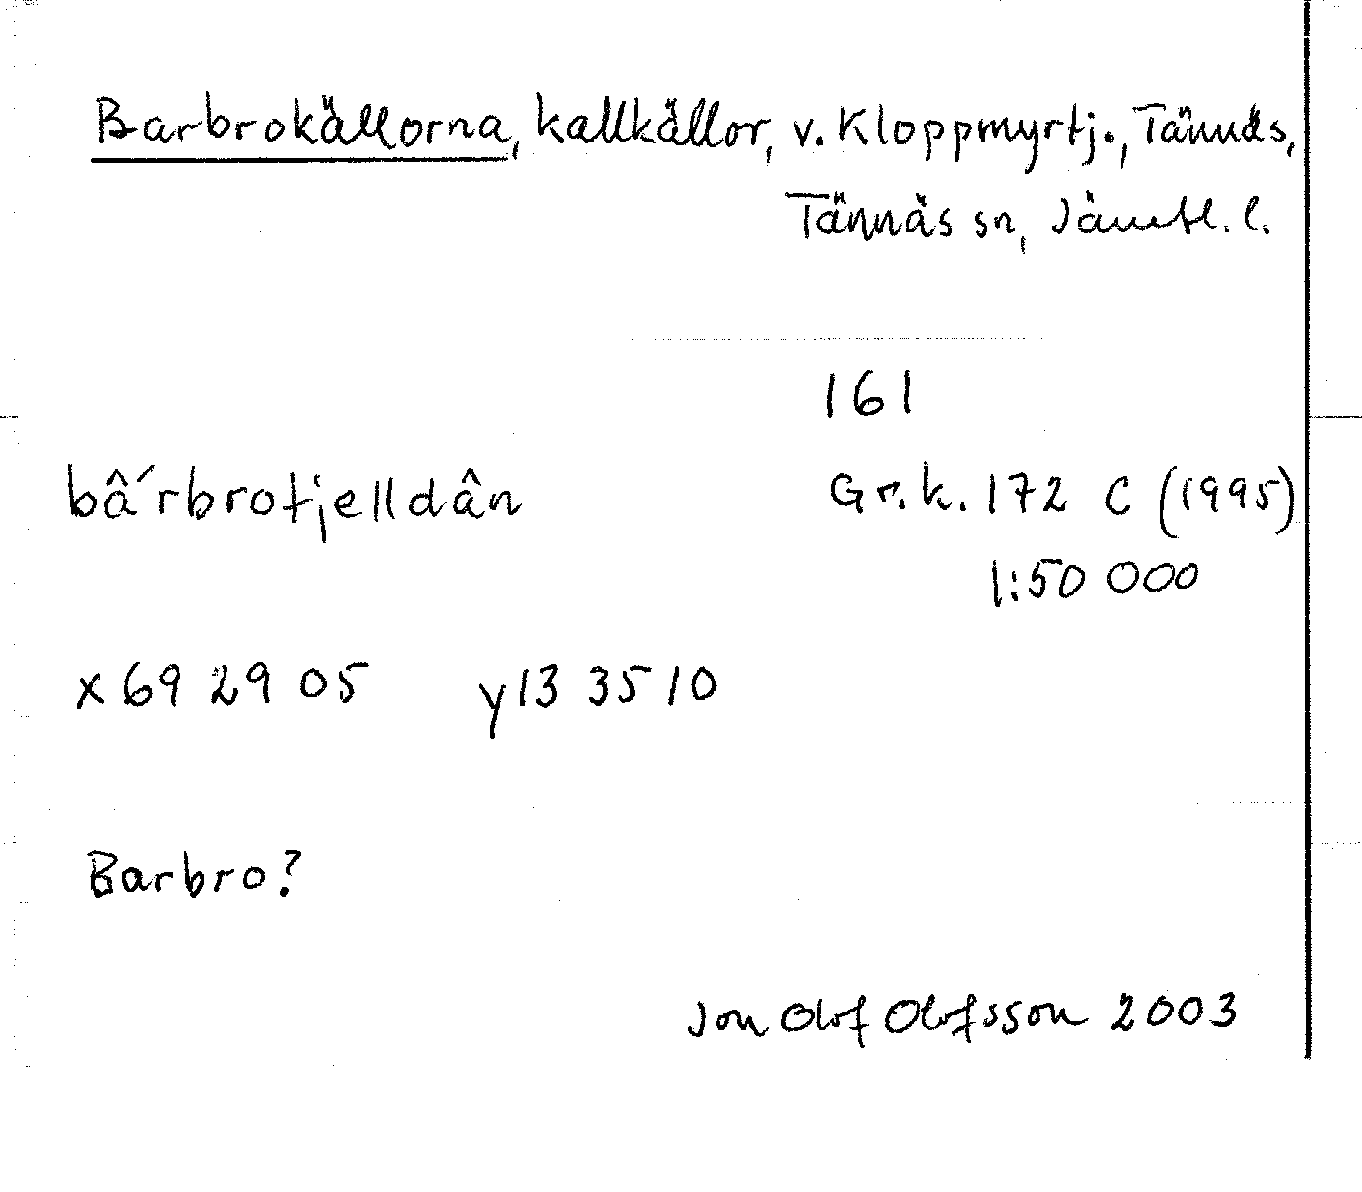 Barbrokällorna, kallkällor, v. Kloppmyrtj., Tännäs,
Tännäs sn, Jämtl. l.
161
bâ´rbrotjelldân
Gr.k. 172 C (1995)
1:50 000
x 69 29 05 y 13 35 10
Barbro?
Jon Olof Olofsson 2003